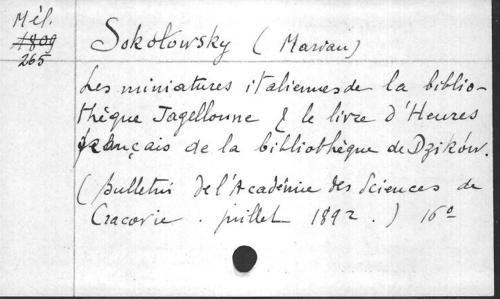 Mél.
1809
265
Sokołowsky (Marian)
Les miniatures italiennes de la biblio-
thèque Jagellonne & le livre d'Heures
français de la bibliothèque de Dzików.
(Bulletin de l'Académie des Sciences de
Cracovie. juillet 1892.) 16º